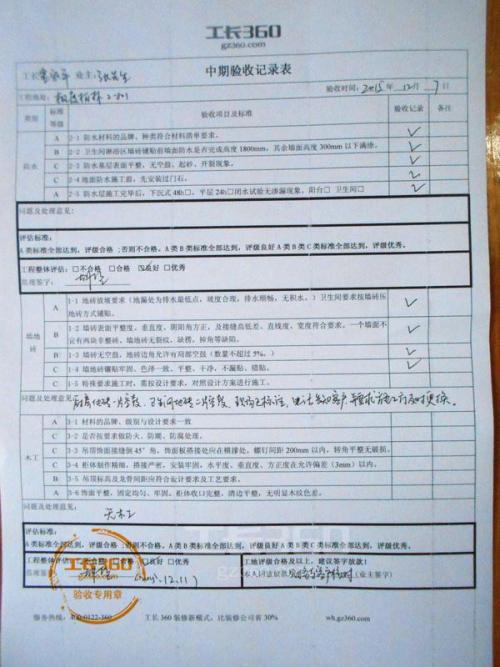 工长360
gz360.com
工长 业主:张先生
中期验收记录表
工程地址: 2-301
验收时间: 2015 年 12 月 7 日
类别 标准等级 验收项目及标准 验收记录 备注
防水
A 2-1 防水材料的品牌、种类符合材料清单要求。 ✓
B 2-2 卫生间淋浴区墙砖铺贴前墙面防水是否完成高度 1800mm,其余墙面高度 300mm 以下满涂。 ✓
C 2-3 防水基层表面平整,无空鼓、起砂、开裂现象。 ✓
C 2-4 地面防水施工前,先安装过门石。 ✓
A 2-5 防水层施工完毕后,下沉式 48h□,平层 24h□闭水试验无渗漏现象,阳台□ 卫生间□ ✓
问题及处理意见:
评估标准:
A 类标准全部达到,评级合格;否则不合格,A 类 B 类标准全部达到,评级良好 A 类 B 类 C 类标准全部达到,评级优秀。
工程整体评估:□不合格 □合格 ☑良好 □优秀
监理签字:
墙地砖
A 1-1 地砖坡坡要求(地漏处为排水最低点,坡度合理,排水顺畅,无积水。)卫生间要求按墙砖压地砖方式铺贴。 ✓
B 1-2 墙砖表面平整度、垂直度、阴阳角方正,及接缝高低差、直线度、宽度符合要求,一个墙面不宜有两块非整砖,墙地砖无裂纹、缺楞、掉角等缺陷。
B 1-3 墙砖无空鼓,地砖边角允许有局部空鼓(数量不超过 5%。) ✓
C 1-4 墙地砖镶贴牢固,色泽一致,平整、干净、不漏贴、错贴。 ✓
C 1-5 特殊要求施工时,需按设计要求,对照设计方案进行施工。
问题及处理意见:
木工
A 3-1 材料的品牌、级别与设计要求一致
C 3-2 是否按要求做防火、防潮、防腐处理。
C 3-3 吊顶饰面接缝倒 45°角,饰面板搭接处应在横撑处,螺钉间距 200mm 以内,转角平整无破损。
C 3-4 柜体制作精细,搭接严密,安装牢固,水平度、垂直度、方正度在允许偏差(3mm)以内。
B 3-5 吊顶标高及龙骨间距应符合设计要求及工艺要求。
B 3-6 饰面平整,固定均匀、牢固,柜体收口完整,清边平整,无明显木纹色差。
问题及处理意见:
无木工
评估标准:
A 类标准全部达到,评级合格;否则不合格,A 类 B 类标准全部达到,评级良好 A 类 B 类 C 类标准全部达到,评级优秀。
工长360
gz360.com
工程整体评估:□不合格 □合格 ☑良好 □优秀
工地评级合格及以上,建议签字放款!
监理签字: 12.11)
本人同意放款 (业主签字)
工长360
验收专用章
服务热线:400-0122-360 工长 360 装修新模式,比装修公司省 30% wh.gz360.com